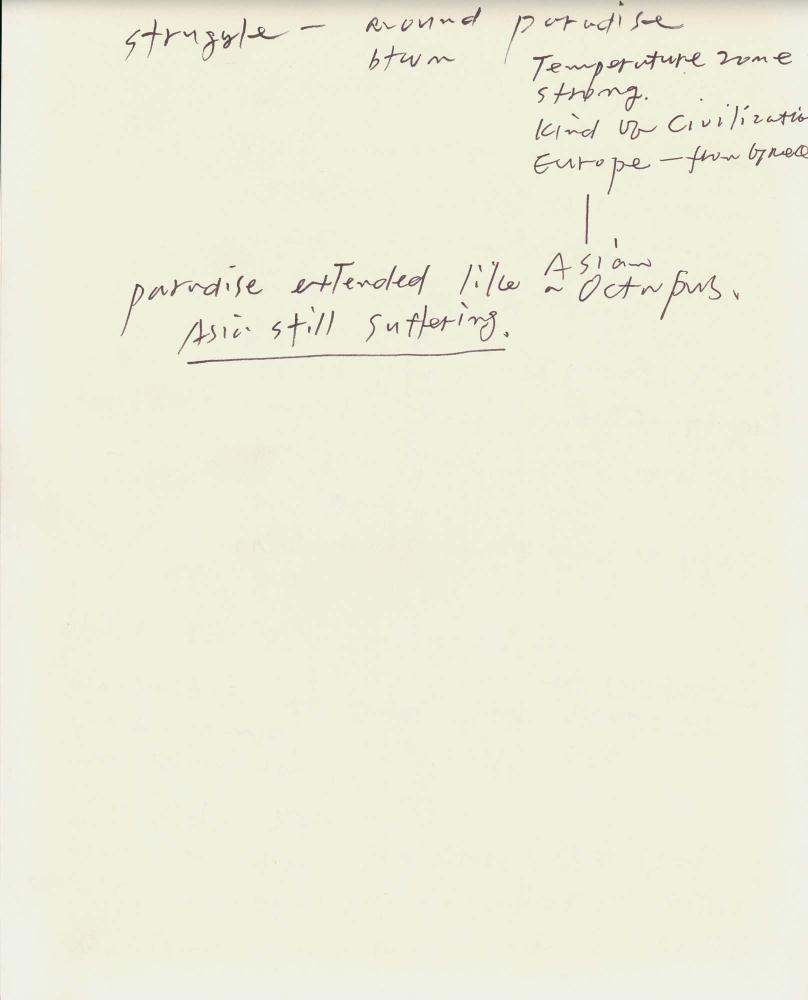 struggle — around paradise
btwn Temperature zone
strong.
Kind of Civilizatio
Europe — from
Asian
paradise extended like a Octopus.
Asia still suffering.